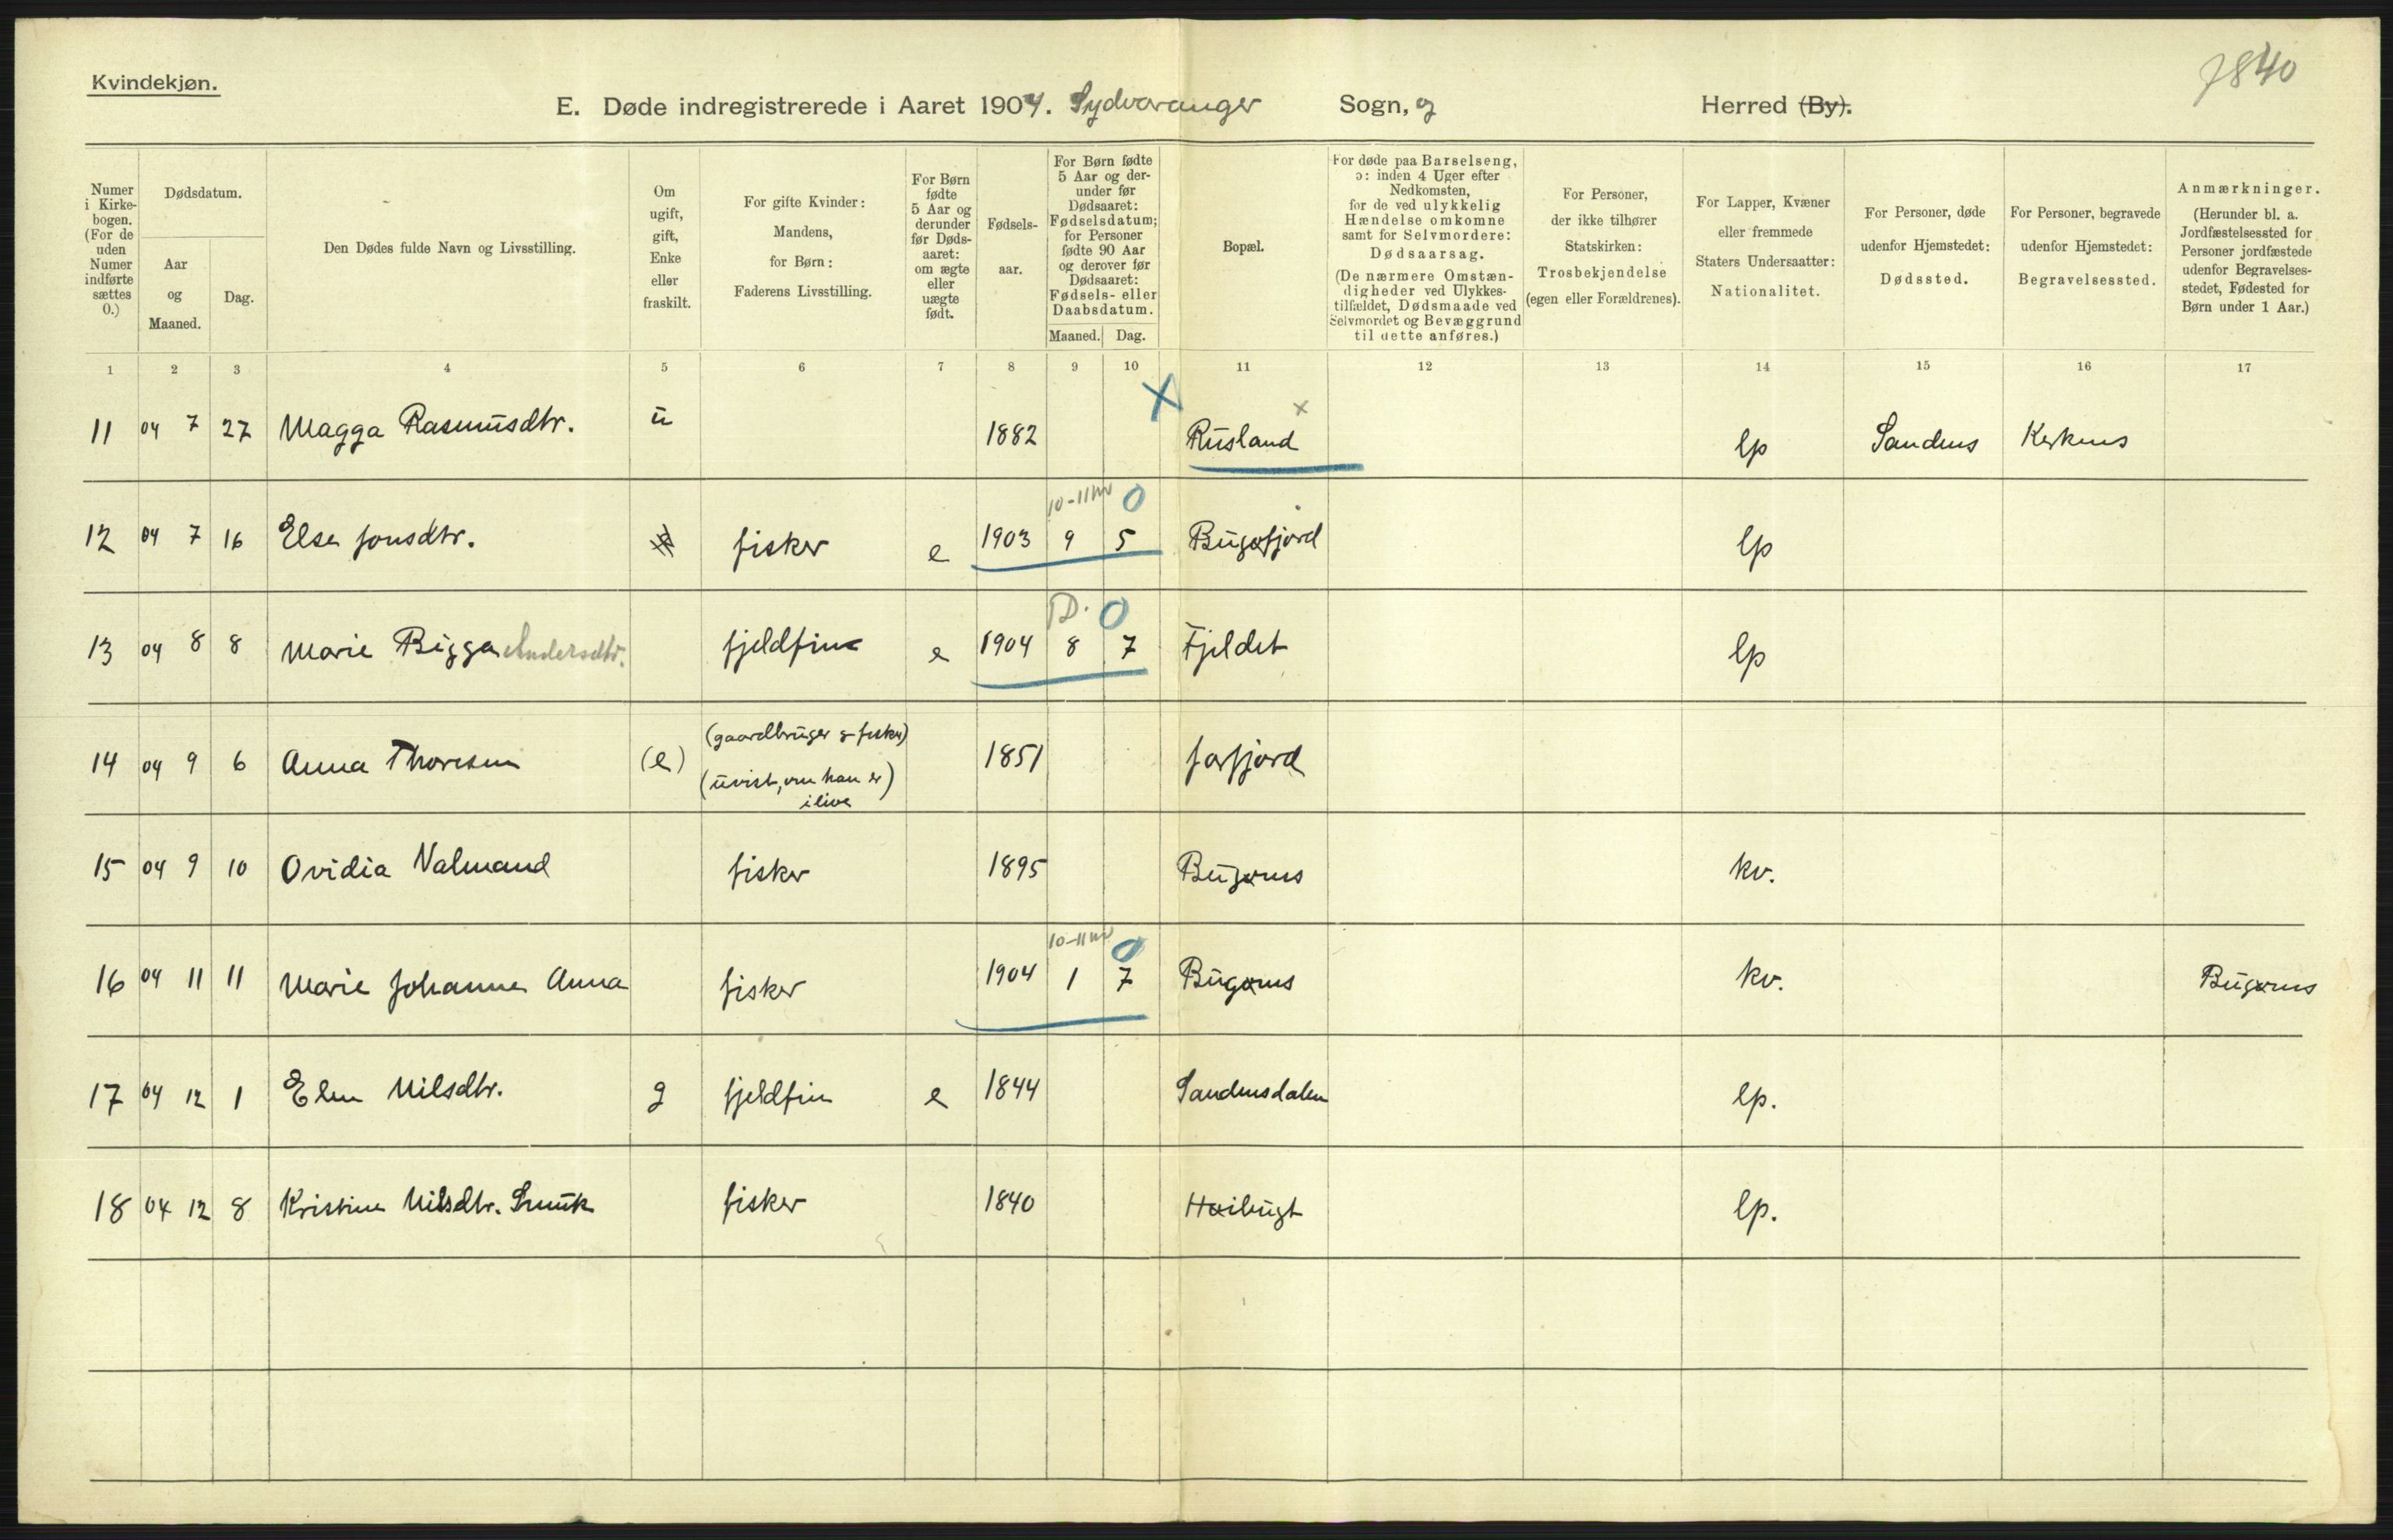 Kvindekjøn.
7840
E. Døde indregistrerede i Aaret 1904. Sydvaranger Sogn, og Herred (By).
Numer i Kirkebogen. (For de uden Numer indførte sættes 0.)
Dødsdatum.
Aar og Maaned.
Dag.
Den Dødes fulde Navn og Livsstilling.
Om ugift, gift, Enke eller fraskilt.
For gifte Kvinder: Mandens, for Børn: Faderens Livsstilling.
For Børn fødte 5 Aar og derunder før Dødsaaret: om ægte eller uægte født.
Fødselsaar.
For Børn fødte 5 Aar og derunder før Dødsaaret: Fødselsdatum; for Personer fødte 90 Aar og derover før Dødsaaret: Fødsels- eller Daabsdatum.
Maaned. Dag.
Bopæl.
For døde paa Barselseng, ɔ: inden 4 Uger efter Nedkomsten, for de ved ulykkelig Hændelse omkomne samt for Selvmordere: Dødsaarsag.
(De nærmere Omstændigheder ved Ulykkestilfældet, Dødsmaade ved Selvmordet og Bevæggrund til dette anføres.)
For Personer, der ikke tilhører Statskirken: Trosbekjendelse (egen eller Forældrenes).
For Lapper, Kvæner eller fremmede Staters Undersaatter: Nationalitet.
For Personer, døde udenfor Hjemstedet: Dødssted.
For Personer, begravede udenfor Hjemstedet: Begravelsessted.
Anmærkninger. (Herunder bl. a. Jordfæstelsessted for Personer jordfæstede udenfor Begravelsesstedet, Fødested for Børn under 1 Aar.)
1 2 3 4 5 6 7 8 9 10 11 12 13 14 15 16 17
11 04 7 27 Magga Rasmusdtr. u 1882 x Rusland x lp Sandnes Kirkenes
10-11 m 0
12 04 7 16 Else Jonsdtr. fisker e 1903 9 5 Bugøfjord lp
D. 0
13 04 8 8 Marie Bigga Andersdtr. fjeldfin e 1904 8 7 Fjeldet lp
14 04 9 6 Anna Thoresen (e) (gaardbruger & fisker) (uvist, om han er ilive) 1851 Jarfjord
15 04 9 10 Ovidia Valmand fisker 1895 Bugønes kv.
10-11 m 0
16 04 11 11 Marie Johanne Anna fisker 1904 1 7 Bugønes kv. Bugønes
17 04 12 1 Elen Nilsdtr. g fjeldfin e 1844 Sandnesdalen lp.
18 04 12 8 Kristine Nilsdtr. Smuk fisker 1840 Høibugt lp.